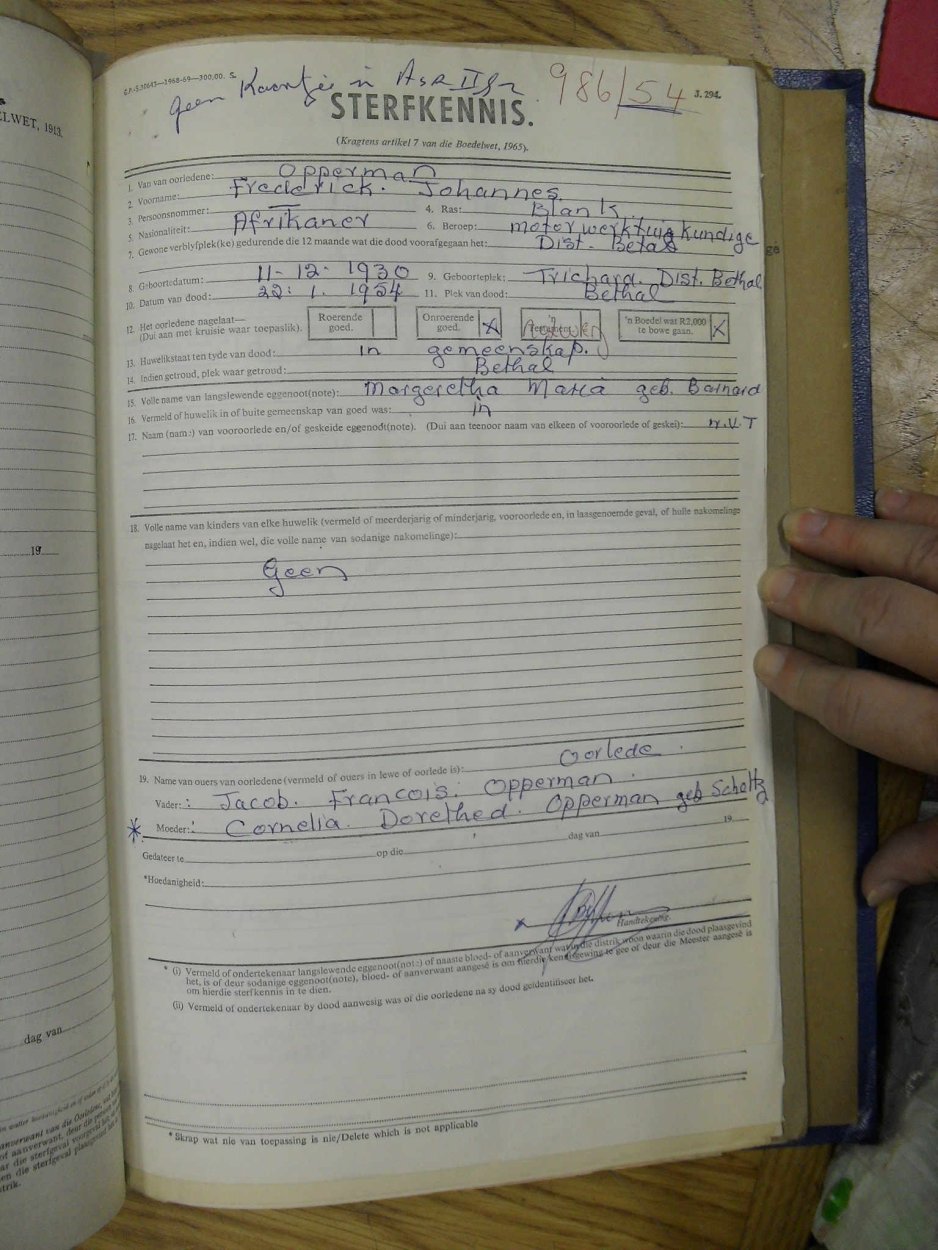 G.P.-S.10645—1968-69—300,00. S.
986/54 J. 294.
Geen Kaartjie in
STERFKENNIS.
(Kragtens artikel 7 van die Boedelwet, 1965).
1. Van van oorledene: Opperman
2. Voorname: Frederick. Johannes.
3. Persoonsnommer: — 4. Ras: Blank
5. Nasionaliteit: Afrikaner 6. Beroep: motorwerktuigkundige
7. Gewone verblyfplek(ke) gedurende die 12 maande wat die dood voorafgegaan het: Dist. Betal
8. Geboortedatum: 11-12-1930 9. Geboorteplek: Trichard. Dist. Bethal
10. Datum van dood: 22. 1. 1954 11. Plek van dood: Bethal
12. Het oorledene nagelaat—
(Dui aan met kruisie waar toepaslik).
Roerende goed.
Onroerende goed. X
'n Boedel wat R2,000 te bowe gaan. X
13. Huwelikstaat ten tyde van dood: in gemeenskap.
14. Indien getroud, plek waar getroud: Bethal
15. Volle name van langslewende eggenoot(note): Margeretha Maria geb. Barnard
16. Vermeld of huwelik in of buite gemeenskap van goed was: in
17. Naam (name) van vooroorlede en/of geskeide eggenoot(note). (Dui aan teenoor naam van elkeen of vooroorlede of geskei): n.v.T
18. Volle name van kinders van elke huwelik (vermeld of meerderjarig of minderjarig, vooroorlede en, in laasgenoemde geval, of hulle nakomelinge
nagelaat het en, indien wel, die volle name van sodanige nakomelinge):
Geen
19. Name van ouers van oorledene (vermeld of ouers in lewe of oorlede is): Oorlede.
Vader: Jacob. Francois. Opperman.
* Moeder: Cornelia. Dorethed. Opperman geb Scholtz
Gedateer te op die dag van 19
*Hoedanigheid:
x
Handtekening.
* (i) Vermeld of ondertekenaar langslewende eggenoot(note) of naaste bloed- of aanverwant wat in die distrik woon waarin die dood plaasgevind
het, is of deur sodanige eggenoot(note), bloed- of aanverwant aangesê is om hierdie kennisgewing te gee of deur die Meester aangesê is
om hierdie sterfkennis in te dien.
(ii) Vermeld of ondertekenaar by dood aanwesig was of die oorledene na sy dood geïdentifiseer het.
* Skrap wat nie van toepassing is nie/Delete which is not applicable
ELWET, 1913.
19
dag van